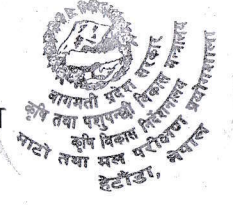 बागमती प्रदेश सरकार
कृषि तथा पशुपन्छी विकास मन्त्रालय
कृषि विकास निर्देशनालय
माटो तथा मल परीक्षण प्रयोगशाला
हेटौंडा, नेपाल